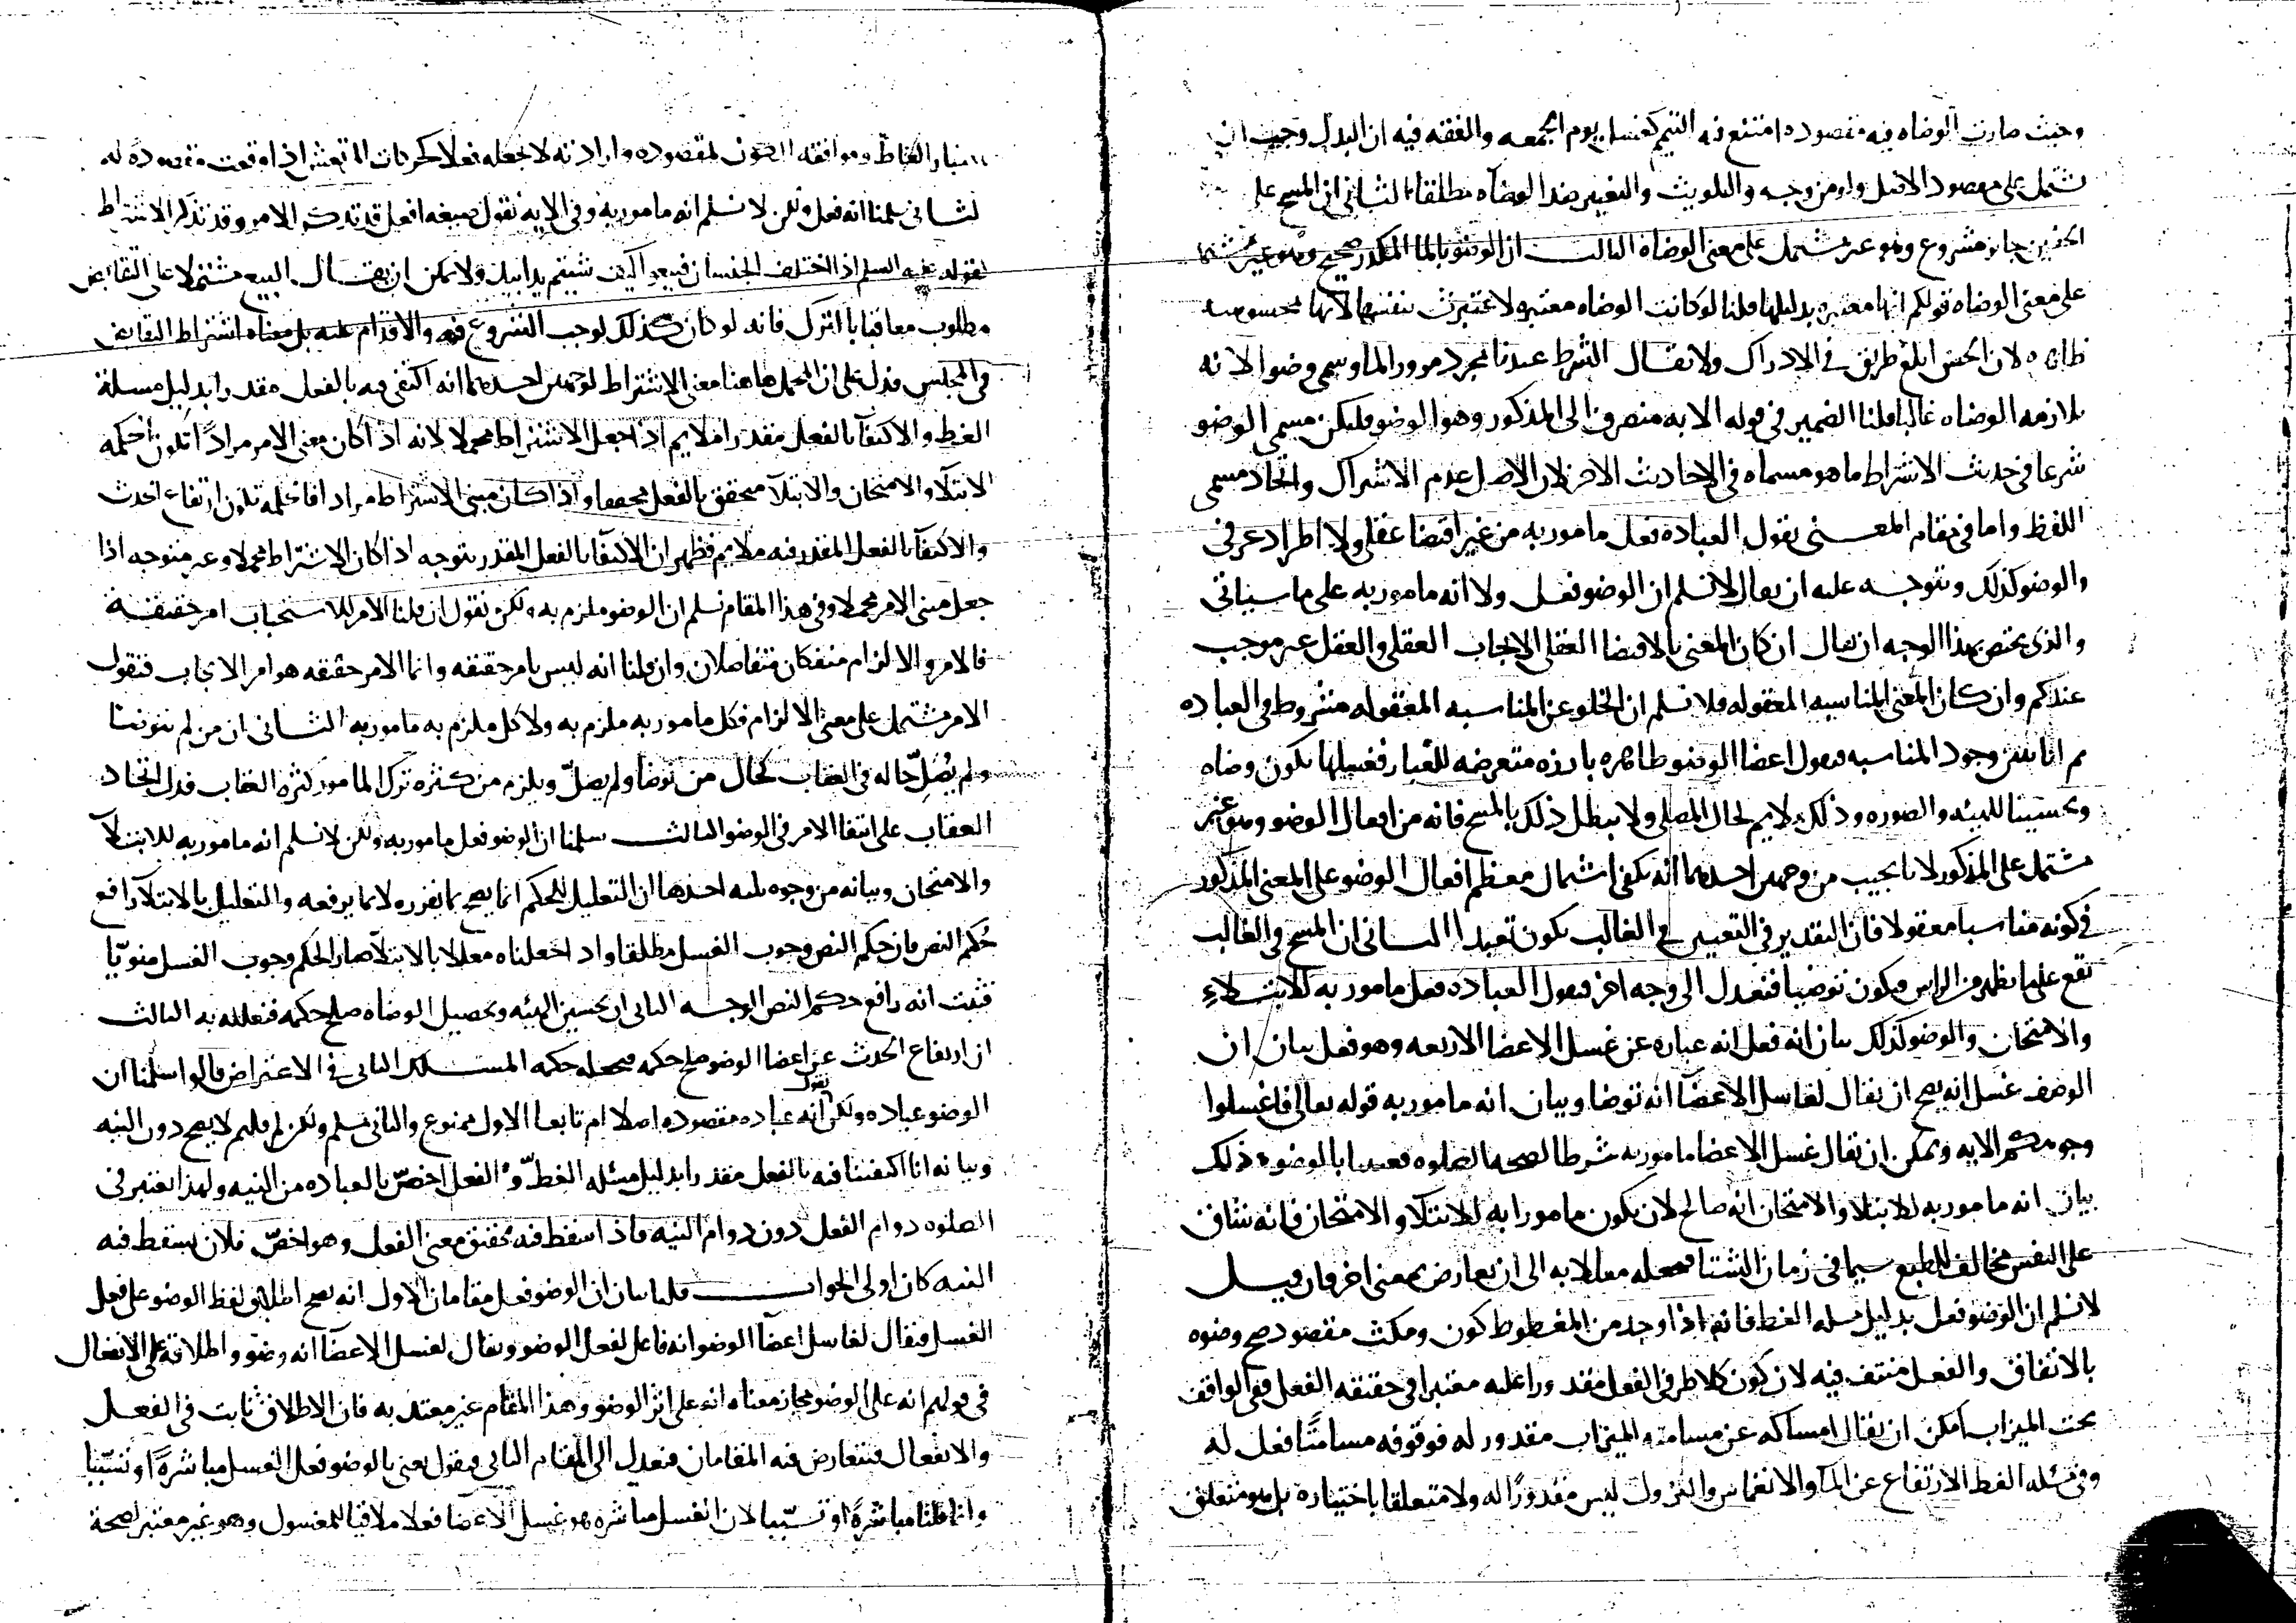 وحيث صارت الوضاه فيه مقصوده امتنع فيه التيمم كغسل يوم الجمعه والفقه فيه ان البدل وجب ان
تشتمل على مقصود الاصل ولو من وجه والتلويث والتغبير ضد الوضاه مطلقا الثاني ان المسح على
الخفين جايز مشروع وهو غير مشتمل على معنى الوضاه الثالث ان الوضو بالما المكدر صحيح وهو غير مشتمل
على معنى الوضاه قولكم انها معتبره بدليلها قلنا لو كانت الوضاه معتبره لاعتبرت بنفسها لانها محسوسه
ظاهره لان الحس ابلغ طريق في الادراك ولا يقال الشرط عندنا مجرد مرور الما وسمي وضوا لانه
يلازمه الوضاه غالبا قلنا الضمير في قوله الا به منصرف الى المذكور وهو الوضو فليكن مسمى الوضو
شرعا في حديث الاشتراط ما هو مسماه في الاحاديث الاخر لان الاصل عدم الاشتراك واتحاد مسمى
اللفظ واما في مقام المعنى نقول العباده فعل مامور به من غير اقتضا عقلي ولا اطراد عرفي
والوضو كذلك ويتوجه عليه ان يقال لا نسلم ان الوضو فعل ولا انه مامور به على ما سياتي
والذي يختص بهذا الوجه ان يقال ان كان المعنى بالاقتضا العقلي الايجاب العقلي والعقل غير موجب
عندكم وان كان المعنى المناسبه المعقوله فلا نسلم ان الخلو عن المناسبه المعقوله مشروط في العباده
ثم انا نبين وجود المناسبه فنقول اعضا الوضو ظاهره بارزه متعرضه للغبار فغسلها يكون وضاه
وتحسينا للهيئه والصوره وذلك ملايم لحال المصلي ولا يبطل ذلك بالمسح فانه من افعال الوضو وهو غير
مشتمل على المذكور لانا نجيب من وجهين احدهما انه يكفي اشتمال معظم افعال الوضو على المعنى المذكور
في كونه مناسبا معقولا فان التقدير في التعيين في الغالب يكون تعبدا الثاني ان المسح في الغالب
تقع على ما يظهر من الراس فيكون توضيا فنعدل الى وجه اخر فنقول العباده فعل مامور به للابتلاء
والامتحان والوضو كذلك بيان انه فعل انه عباره عن غسل الاعضا الاربعه وهو فعل بيان ان
الوصف غسل انه يصح ان يقال لغاسل الاعضا انه توضا وبيان انه مامور به قوله تعالى فاغسلوا
وجوهكم الايه ويمكن ان يقال غسل الاعضا مامور به شرطا لصحه الصلوه فعبدنا بالوضو وذلك
بيان انه مامور به للابتلا والامتحان انه صالح لان يكون مامورا به للابتلا والامتحان فانه شاق
على النفس مخالف للطبع سيما في زمان الشتا فنجعله معللا به الى ان يعارض بمعنى اخر فان قيل
لا نسلم ان الوضو فعل بدليل مسله الغط فانه اذا وجد من المغطوط كون ومكث مقصود صح وضوه
بالاتفاق والفعل منتف فيه لان كون كلا طرفي الفعل مقدورا عليه معتبرا في حقيقه الفعل ففي الواقف
تحت الميزاب امكن ان يقال امساكه عن مسامته الميزاب مقدور له فوقوفه مسامتا فعل له
وفي مسئله الغط الارتفاع عن الما والانغماس والنزول ليس مقدورا له ولا متعلقا باختياره بل هو متعلق
الغاط وموافقه لمقصوده وارادته لا يجعله فعلا كحركات المرتعش اذا وقعت مقصوده له
الثاني سلمنا انه فعل ولكن لا نسلم انه مامور به وفي الايه نقول صيغه افعل قد تذكر الامر وقد تذكر الاشتراط
لقوله عليه السلم اذا اختلف الجنسان فبيعوا كيف شيتم يدا بيد ولا يمكن ان يقال البيع مشتملا على التقابض
مطلوب معاقبا بالترك فانه لو كان كذلك لوجب الشروع فيه والاقدام عليه بل معناه اشتراط التقابض
في المجلس فدل على ان المحمل هاهنا معنى الاشتراط لوجهين احدهما انه اكتفى فيه بالفعل مقدرا بدليل مسلة
الغط والاكتفا بالفعل مقدرا ملايم اذا جعل الاشتراط محملا لانه اذا كان معنى الامر مرادا تكون الحكمه
الابتلا والامتحان والابتلا متحقق بالفعل محققا واذا كان مبنى الاشتراط مرادا فالحكمه تكون ارتفاع الحدث
والاكتفا بالفعل المقدر فيه ملايم فظهر ان الاكتفا بالفعل المقدر يتوجه اذا كان الاشتراط محملا وغير متوجه اذا
جعل مبنى الامر محملا وفي هذا المقام نسلم ان الوضو ملزم به ولكن نقول ان قلنا الامر للاستحباب امر حقيقة
فالامر والالزام منفكان متفاصلان وان قلنا انه ليس بامر حقيقه وانما الامر حقيقه هو امر الايجاب فنقول
الامر مشتمل على معنى الالزام فكل مامور به ملزم به ولا كل ملزم به مامور به الثاني ان من لم يتوضا
ولم يُصلِّ حاله في العقاب كحال من توضا ولم يصلّ ويلزم من كثره ترك المامور كثره العقاب فدل اتحاد
العقاب على انتفا الامر في الوضو الثالث سلمنا ان الوضو فعل مامور به ولكن لا نسلم انه مامور به للابتلا
والامتحان وبيانه من وجوه ثلثه احدها ان التعليل للحكم انما يصح بما يقرره لا بما يرفعه والتعليل بالابتلا رافع
حُكم النص فان حكم النص وجوب الغسل مطلقا واذا جعلناه معللا بالابتلا صار الحكم وجوب الغسل منويّا
فثبت انه رافع حكم النص الوجه الثاني ان تحسين الهيئه وتحصيل الوضاه صلح حكمه فنعلله به الثالث
ان ارتفاع الحدث عن اعضا الوضو صلح حكمه فنجعله حكمه المسلك الثاني في الاعتراض قالوا سلمنا ان
الوضو عباده ولكن نقول انه عباده مقصوده اصلا ام تابعا الاول ممنوع والثاني مسلم ولكن لم قلتم لا يصح دون النيه
وبيانه انا اكتفينا فيه بالفعل مقدرا بدليل مسئله الغطّ والفعل اخصّ بالعباده من النيه ولهذا يعتبر في
الصلوه دوام الفعل دون دوام النيه فاذا سقط فيه تحقيق معنى الفعل وهو اخصّ فلان يسقط فيه
النيه كان اولى الجواب قلنا بيان ان الوضو فعل مقامان الاول انه يصح اطلاق لفظ الوضو على فعل
الغسل فيقال لغاسل اعضا الوضو انه فاعل لفعل الوضو ويقال لغسل الاعضا انه وضو واطلاقه على الانفعال
في قولهم انه على الوضو مجاز معناه انه على اثر الوضو وهذا المقام غير معتد به فان الاطلاق ثابت في الفعل
والانفعال فيتعارض فيه المقامان فنعدل الى المقام الثاني فنقول يعنى بالوضو فعل الغسل مباشرةً او تسبّبا
وانما قلنا مباشرةً او تسبّبا لان الغسل مباشره هو غسل الاعضا فعلا ملاقيا للمغسول وهو غير معتبر لصحة